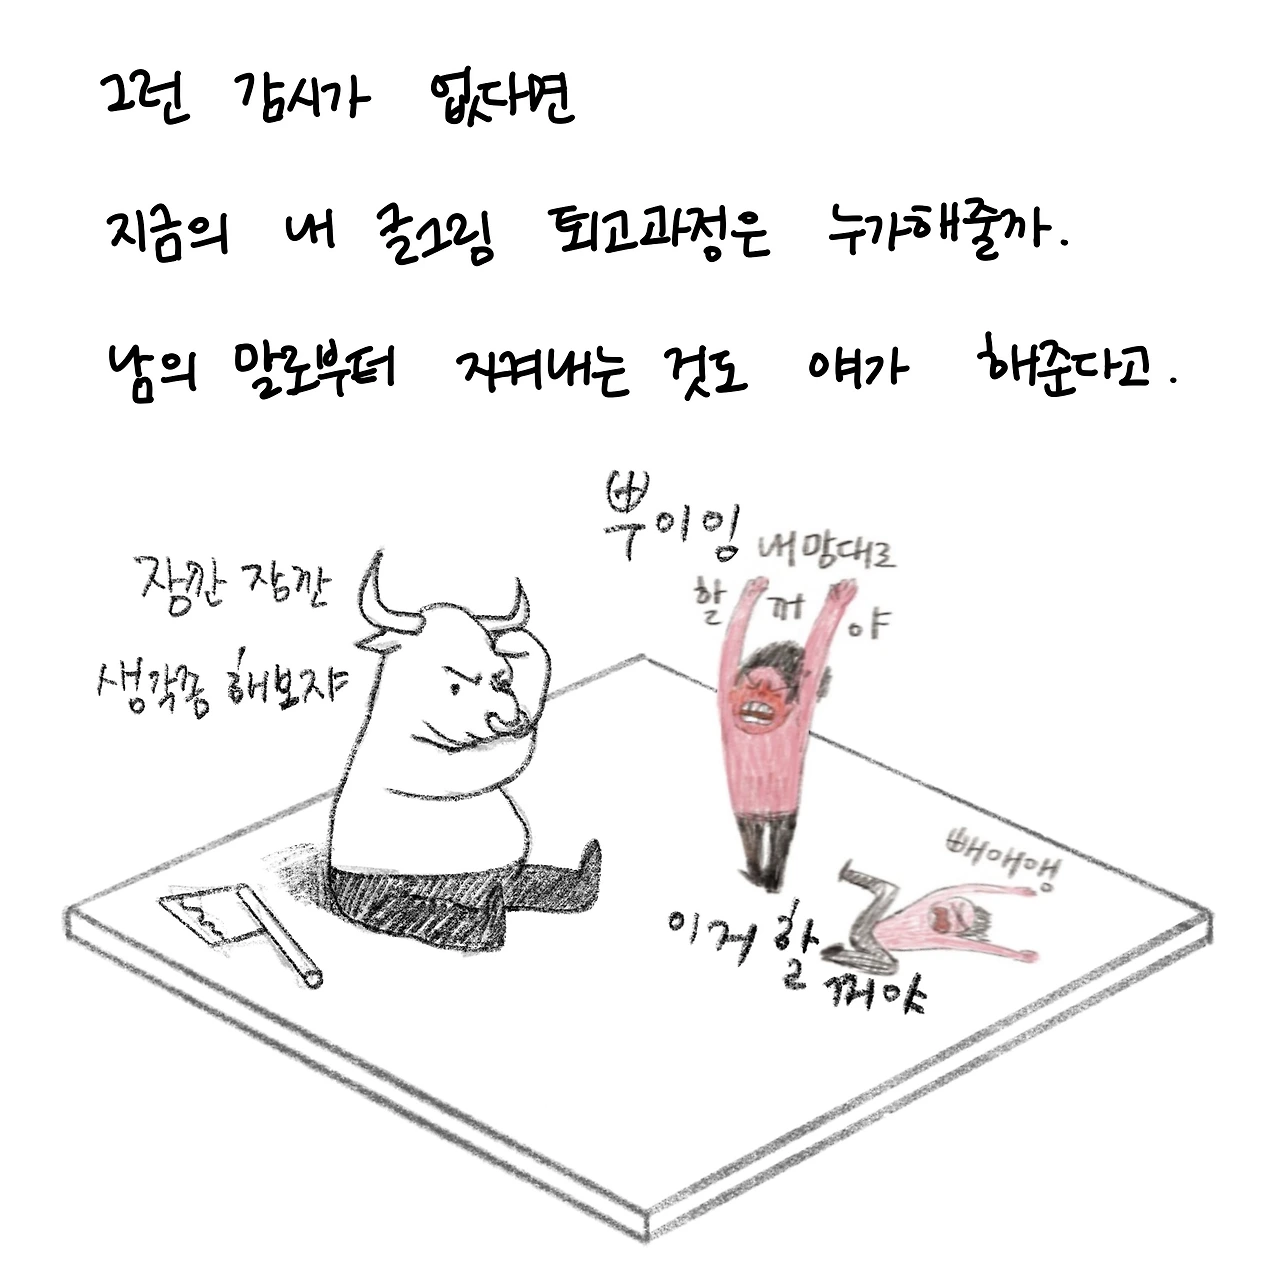 그런 감시가 없다면
지금의 내 글그림 퇴고과정은 누가해줄까.
남의 말로부터 지켜내는 것도 얘가 해준다고.
잠깐 잠깐
생각좀 해보자
뿌이잉
내 맘대로
할 꺼 야
빼애앵
이거 할
꺼야